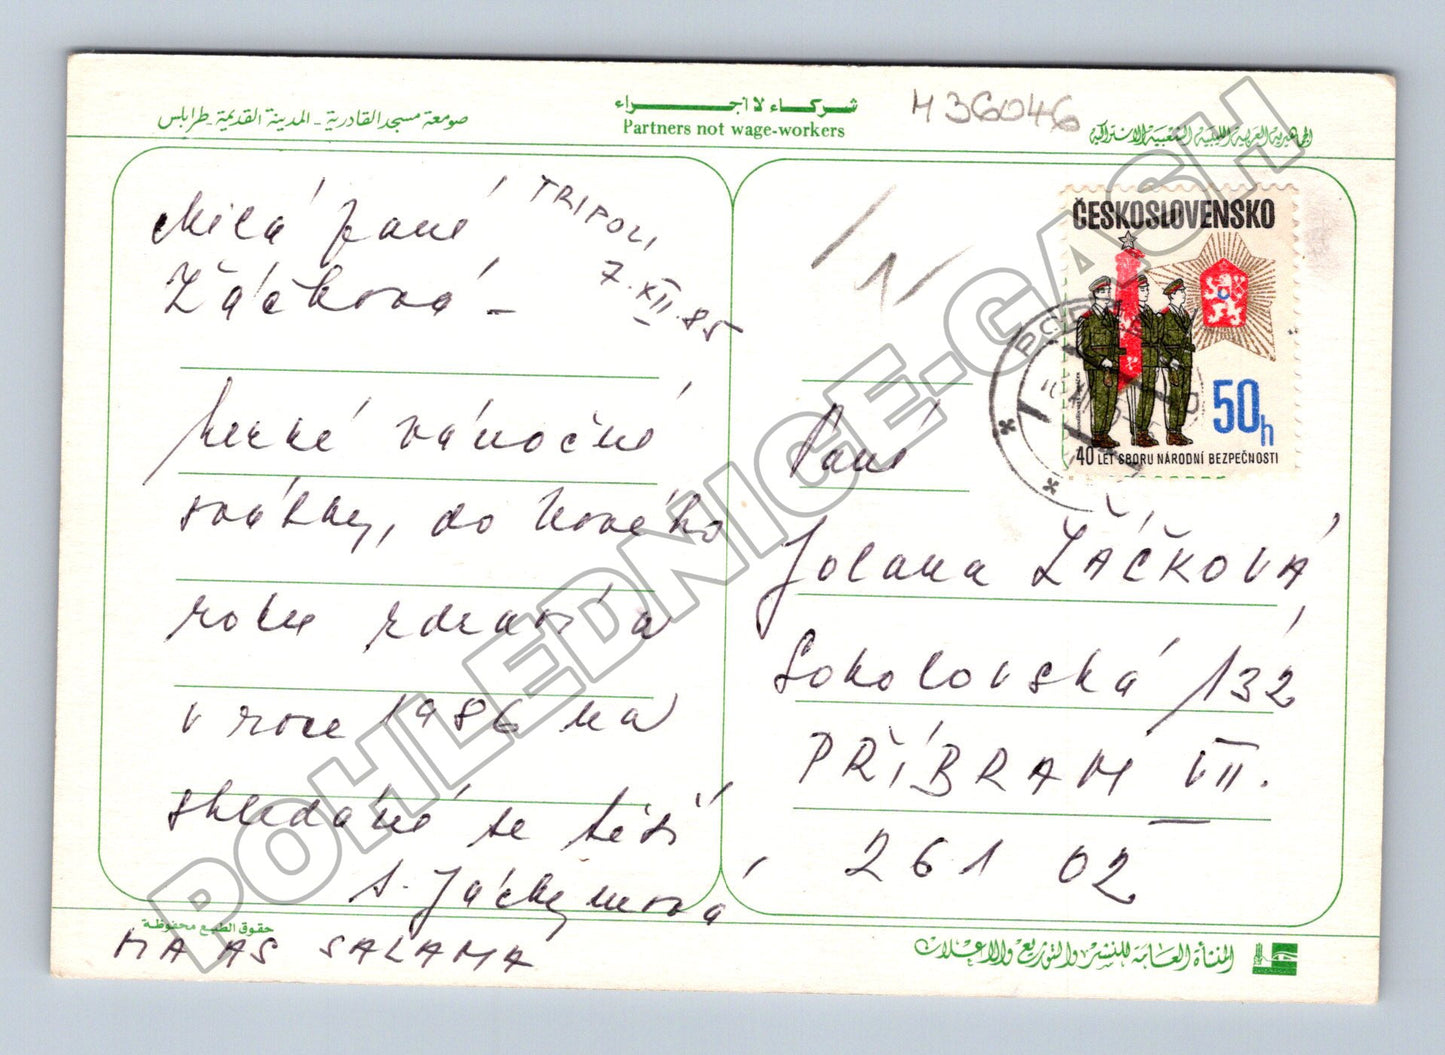 صومعة مسجد القادرية - المدينة القديمة - طرابلس
شركاء لا اجراء
Partners not wage-workers
M 36046
الجماهيرية العربية الليبية الشعبية الاشتراكية
TRIPOLI
7. XII. 85
Milá paní
Žáčková -
hezké vánoční
svátky, do Nového
roku zdraví a
v roce 1986 na
shledání se těší
Jáchymová
MA AS SALAMA
ČESKOSLOVENSKO
50h
40 LET SBORU NÁRODNÍ BEZPEČNOSTI
Paní
Jolana ŽÁČKOVÁ
Sokolovská 132
PŘÍBRAM VII.
261 02
حقوق الطبع محفوظة
المنشأة العامة للنشر والتوزيع والاعلان
POHLEDNICE.CASH